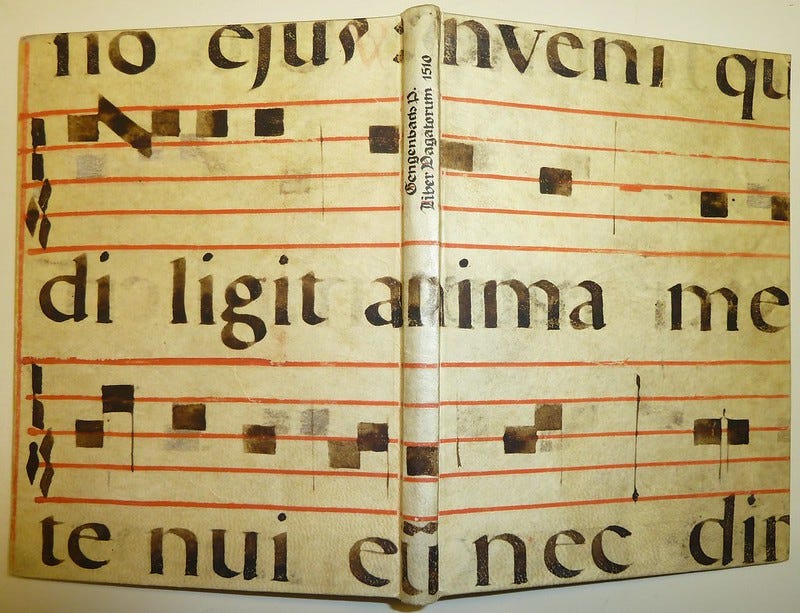 no ejus: inveni qu
di ligit anima me
te nui eū nec dim
Gengenbach P.
Liber Vagatorum 1510